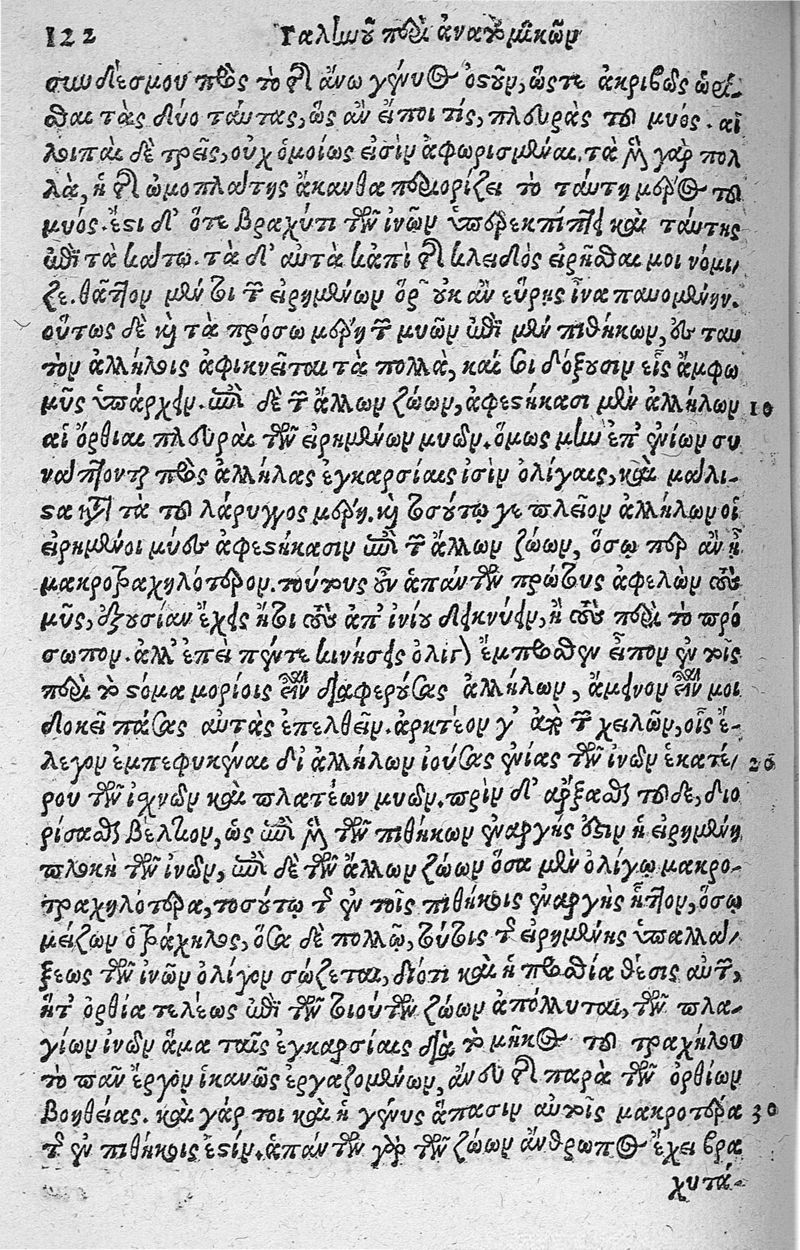 122 Γαληνοῦ περὶ ἀνατομικῶν
συνδέσμου πρὸς τὸ τῆς ἄνω γένυος ὀστοῦν, ὥστε ἀκριβῶς ὡρί-
σθαι τὰς δύο ταύτας, ὡς ἂν εἴποι τίς, πλευρὰς τοῦ μυός. αἱ
λοιπαὶ δὲ τρεῖς, οὐχ ὁμοίως εἰσὶν ἀφωρισμέναι. τὰ μὲν γὰρ πολ
λὰ, ἡ τῆς ὠμοπλάτης ἄκανθα περιορίζει τὸ ταύτῃ μέρος τοῦ
μυός. ἔστι δ' ὅτε βραχύτι τῶν ἰνῶν ὑπερεκπίπτει καὶ ταύτης
ἐπὶ τὰ κάτω. τὰ δ' αὐτὰ κἀπὶ τῆς κλειδὸς εἰρῆσθαι μοι νόμι-
ζε. θᾶττον μέν τοι τῶν εἰρημένων οὐκ ἂν εὕρης ἵνα παυομένην.
οὕτως δὲ καὶ τὰ πρόσω μέρη τῶν μυῶν ἐπὶ μὲν πιθήκων, εἰς ταυ
τὸν ἀλλήλοις ἀφικνεῖται τὰ πολλὰ, καί τοι δόξουσιν εἷς ἄμφω
μῦς ὑπάρχειν. ἐπὶ δὲ τῶν ἄλλων ζώων, ἀφεστήκασι μὲν ἀλλήλων 10
αἱ ὄρθιαι πλευραὶ τῶν εἰρημένων μυῶν. ὅμως μὴν ἐπ' ἐνίων συ
νάπτονται πρὸς ἀλλήλας ἐγκαρσίαις ἰσὶν ὀλίγαις, καὶ μάλι-
στα κατὰ τὰ τοῦ λάρυγγος μέρη. καὶ τοσούτῳ γε πλεῖον ἀλλήλων οἱ
εἰρημένοι μύες ἀφεστήκασιν ἐπὶ τῶν ἄλλων ζώων, ὅσῳ περ ἂν ᾖ
μακροτραχηλότερον. τούτους οὖν ἁπάντων πρώτους ἀφελὼν τοὺς
μῦς, ἐξουσίαν ἔχεις ἤτοι τοὺς ἀπ' ἰνίου δεικνύειν, ἢ τοὺς περὶ τὸ πρό
σωπον. ἀλλ' ἐπεὶ πέντε κινήσεις ὀλίγον ἔμπροσθεν εἶπον ἐν τοῖς
περὶ τὸ στόμα μορίοις εἶναι διαφερούσας ἀλλήλων, ἄμεινον εἶναι μοι
δοκεῖ πάσας αὐτὰς ἐπελθεῖν. ἀρκτέον γ' ἀπὸ τῶν χειλῶν, οἷς ἔ-
λεγον ἐμπεφυκέναι δι' ἀλλήλων ἰούσας ἐνίας τῶν ἰνῶν ἑκατέ- 20
ρου τῶν ἰσχνῶν καὶ πλατέων μυῶν. πρὶν δ' ἄρξασθαι τοῦδε, διο
ρίσασθαι βέλτιον, ὡς ἐπὶ μὲν τῶν πιθήκων ἐναργής ἐστιν ἡ εἰρημένη
πλοκὴ τῶν ἰνῶν, ἐπὶ δὲ τῶν ἄλλων ζώων ὅσα μὲν ὀλίγῳ μακρο-
τραχηλότερα, τοσούτῳ τῆς ἐν τοῖς πιθήκοις ἐναργὴς ἧττον, ὅσῳ
μείζων ὁ τράχηλος, ὅσα δὲ πολλῷ, τούτοις τῆς εἰρημένης ὑπαλλά-
ξεως τῶν ἰνῶν ὀλίγον σώζεται, διότι καὶ ἡ προσθία θέσις αὐτῶν,
ἥτ' ὀρθία τελέως ἐπὶ τῶν τοιούτων ζώων ἀπόλλυται, τῶν πλα-
γίων ἰνῶν ἅμα ταῖς ἐγκαρσίαις διὰ τὸ μῆκος τοῦ τραχήλου
τὸ πᾶν ἔργον ἱκανῶς ἐργαζομένων, ἄνευ τῆς παρὰ τῶν ὀρθίων
βοηθείας. καὶ γάρ τοι καὶ ἡ γένυς ἅπασιν αὐτοῖς μακροτέρα 30
τῆς ἐν πιθήκοις ἐστίν. ἁπάντων γὰρ τῶν ζώων ἄνθρωπος ἔχει βρα
χυτά-